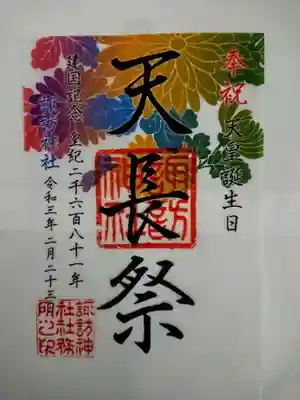 奉祝 天皇誕生日
天長祭
諏訪神社
建国記念 皇紀二千六百八十一年
諏訪神社 令和三年二月二十三
諏訪神
社社務
所之印